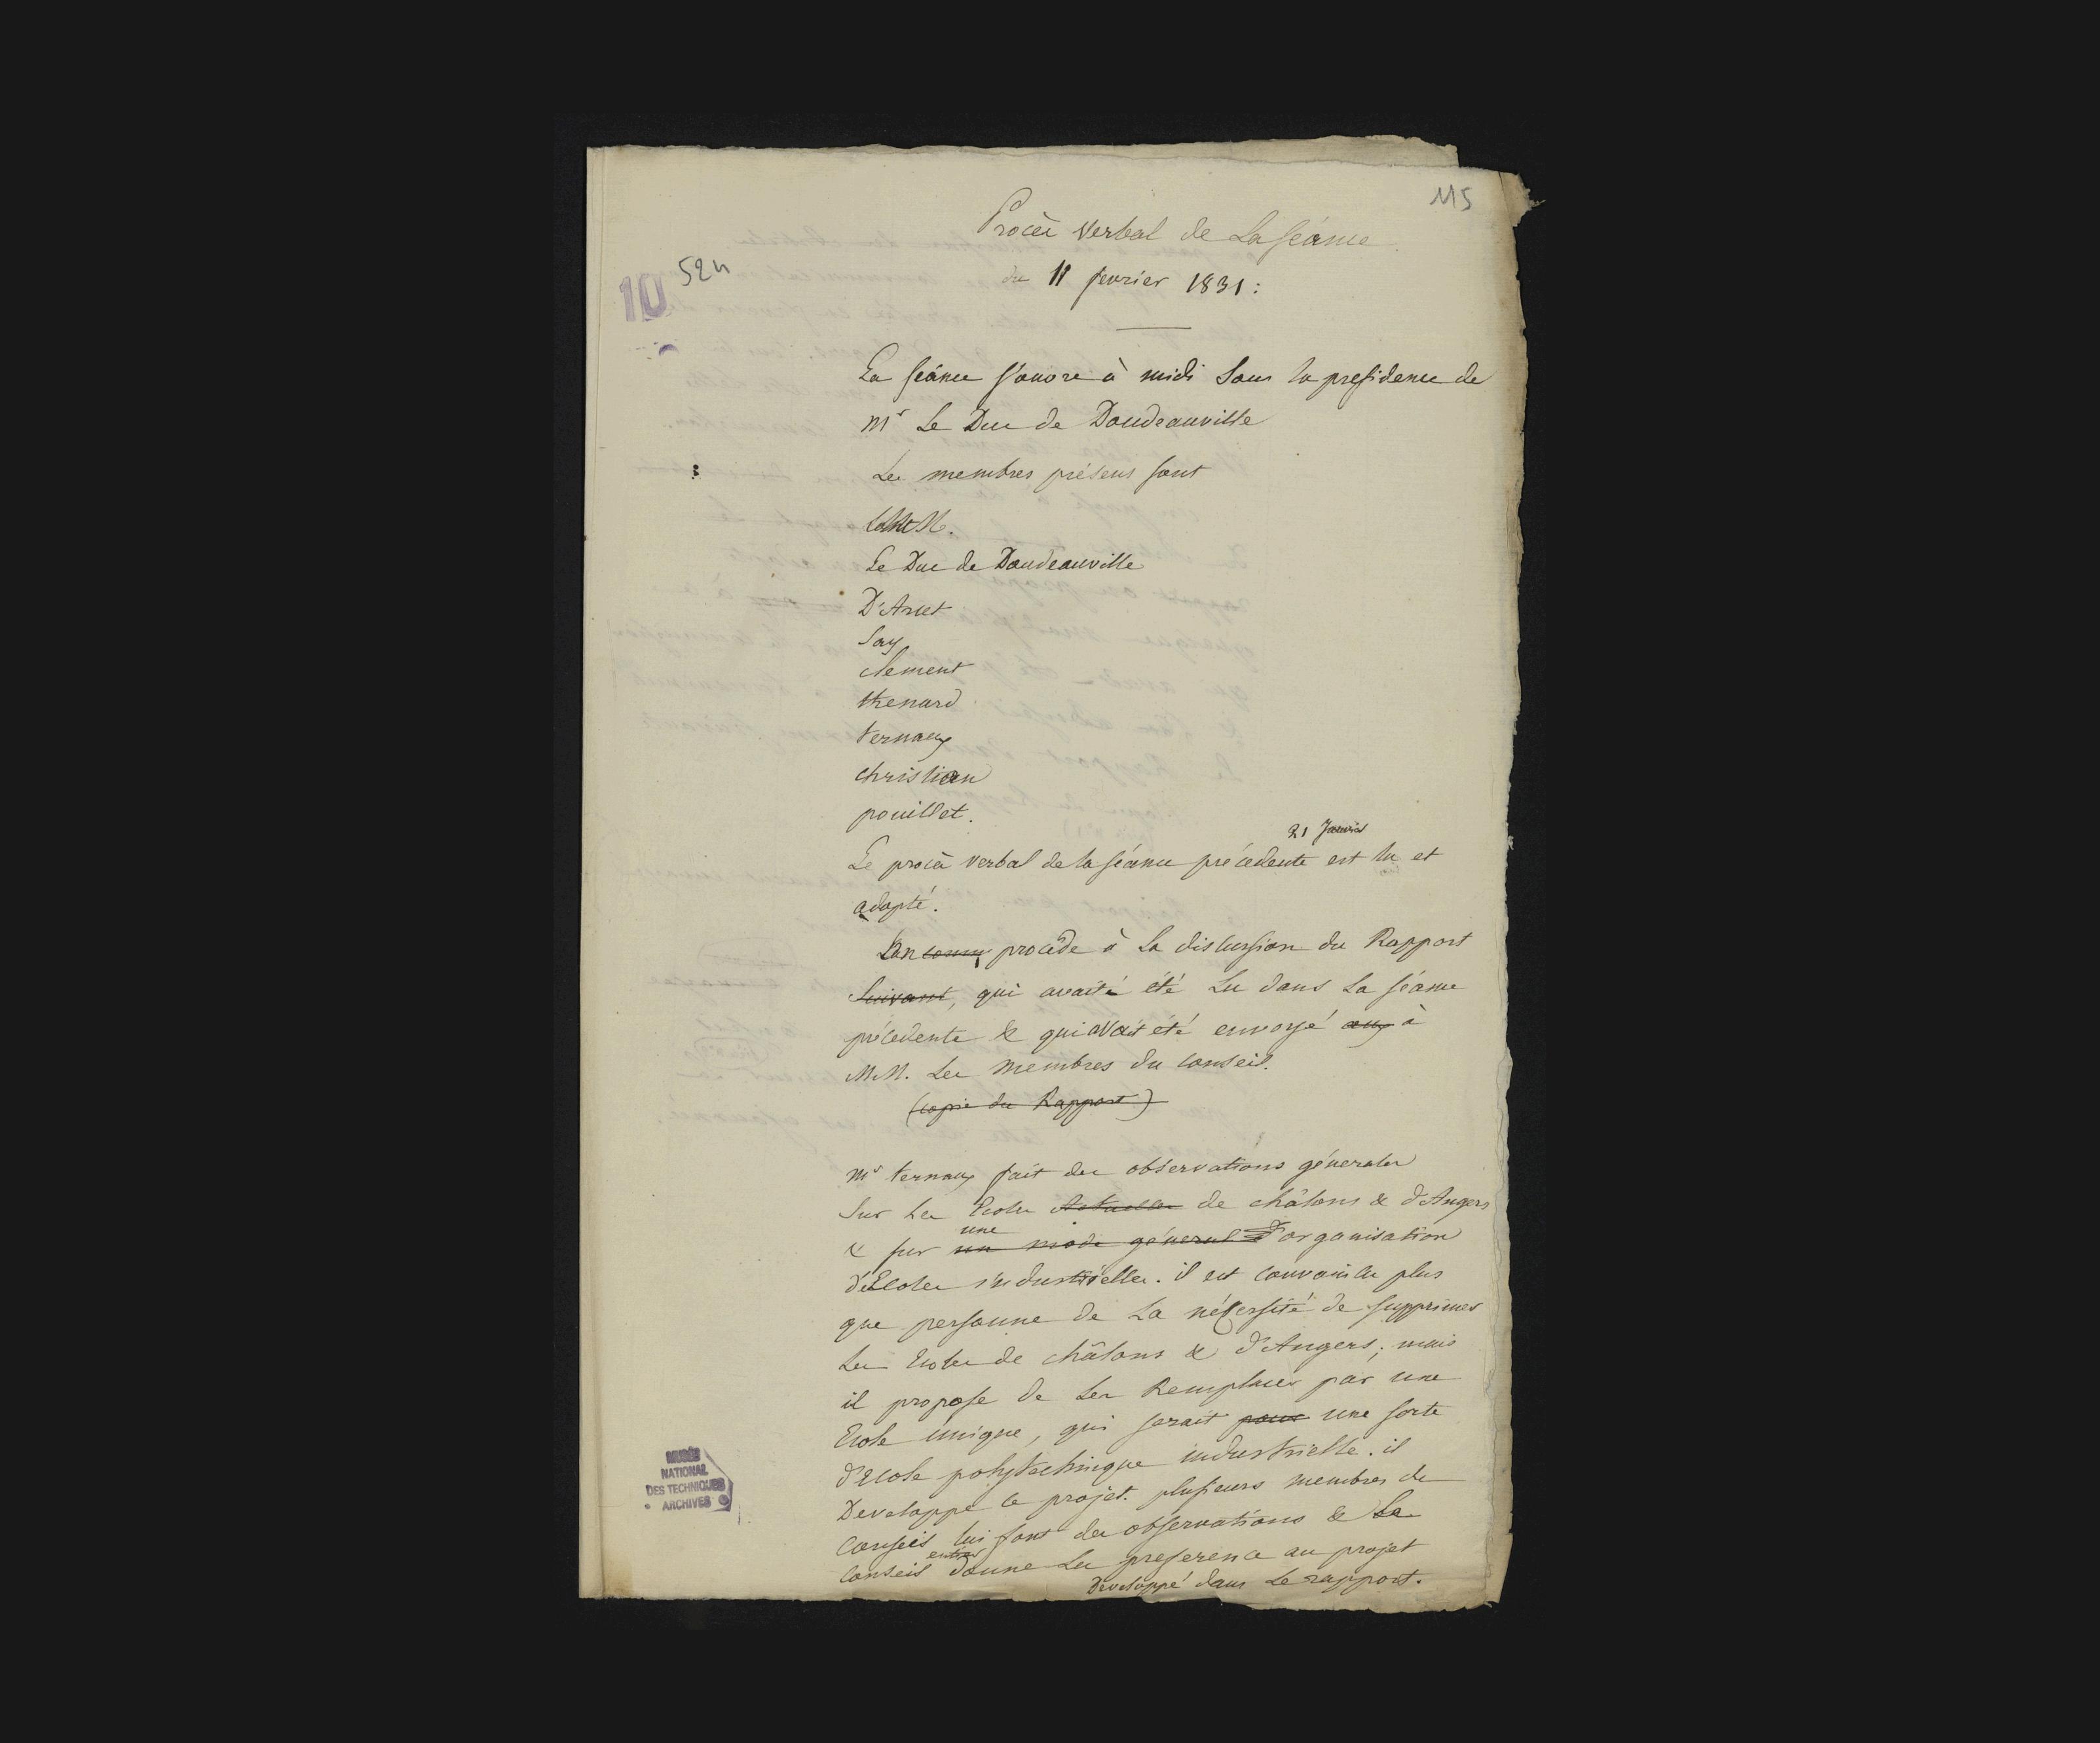 115
Procès verbal de La Séance
du 11 fevrier 1831 :
10 524
La séance s'ouvre à midi sous la presidence de
Mr Le Duc de Doudeauville
Les membres présens sont
Le Duc de Doudeauville
D'Arcet
Say
clement
thenard
ternaux
christian
pouillet.
21 Janvier
Le procès verbal de la séance précedente est lu et
adopté.
L'on procède à La discussion du Rapport
suivant, qui avait été Lu dans La séance
précedente & qui avait été envoyé aux à
MM. Les Membres du conseil.
(copie du Rapport)
Mr ternaux fait des observations générales
Sur Les Ecoles Actuelles de châlons & d'Angers
une
& sur un mode général d'organisation
d'Ecoles industrielles. il est convaincu plus
que personne de La nécessité de supprimer
Les Ecoles de châlons & d'Angers; mais
il propose de Les Remplacer par une
Ecole unique, qui serait pour une sorte
d'Ecole polytechnique industrielle. il
Developpe ce projet. plusieurs membres du
conseil lui font des observations & Le
entier
conseil donne La preference au projet
Developpé dans Le rapport.
MUSÉE
NATIONAL
DES TECHNIQUES
ARCHIVES